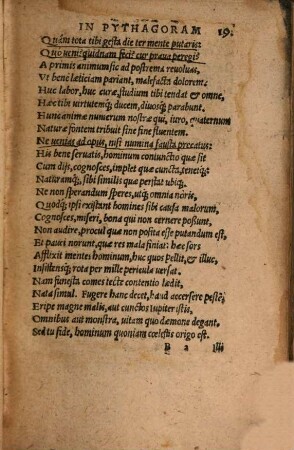 IN PYTHAGORAM 19.
Quàm tota tibi gesta die ter mente putaris:
Quo veni: quidnam feci: cur praua peregi?
A primis animum sic ad postrema reuoluas,
Vt bene leticiam pariant, malefacta dolorem.
Huc labor, huc curæ studium tibi tendat & omne,
Hæc tibi virtutemq; ducem, diuosq; parabunt.
Hunc animæ numerum nostræ qui, iuro, quaternum
Naturæ fontem tribuit sine fine fluentem.
Ne venias ad opus, nisi numina fausta precatus:
His bene seruatis, hominum coniunctio quæ sit
Cum dijs, cognosces, implet quæ cuncta, tenetq;
Naturamq; sibi similis quæ perstat vbiq;.
Ne non sperandum speres, vtq; omnia noris,
Quodq; ipsi existant homines sibi causa malorum,
Cognosces, miseri, bona qui non cernere possunt,
Non audire, procul quæ non posita esse putandum est,
Et pauci norunt, quæ res mala finiat: hæc sors
Afflixit mentes hominum, huc quos pellit, & illuc,
Insilensq; rota per mille pericula versat.
Nam funesta comes tectè contentio lædit,
Nata simul. Fugere hanc decet, haud accersere pestē:
Eripe magne malis, aut cunctos Iupiter istis,
Omnibus aut monstra, vitam quo dæmone degant.
Sed tu fide, hominum quoniam cœlestis origo est.
B iij